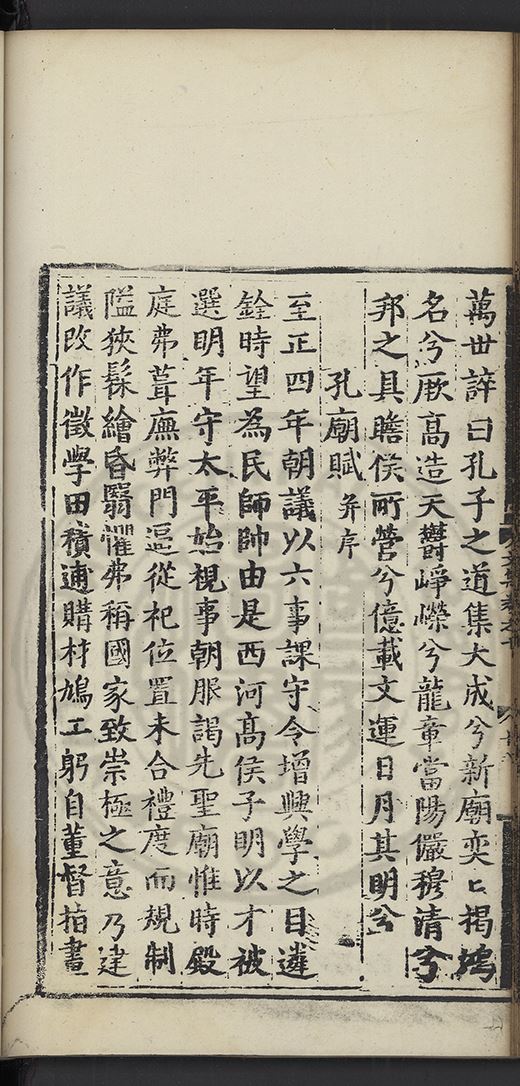 萬世誶曰孔子之道集大成兮新廟奕〻揭鴻
名兮厥高造天欝崢嶸兮龍章當陽儼穆清兮
邦之具瞻侯所營兮億載文運日月其明兮
孔廟賦并序
至正四年朝議以六事課守令增興學之目遴
銓時望為民師帥由是西河高侯子明以才被
選明年守太平始視事朝服謁先聖廟惟時殿
庭弗葺廡弊門逼從祀位置未合禮度而規制
隘狹髹繪昏翳懼弗稱國家致崇極之意乃建
議改作徵學田積逋購材鳩工躬自董督指畫